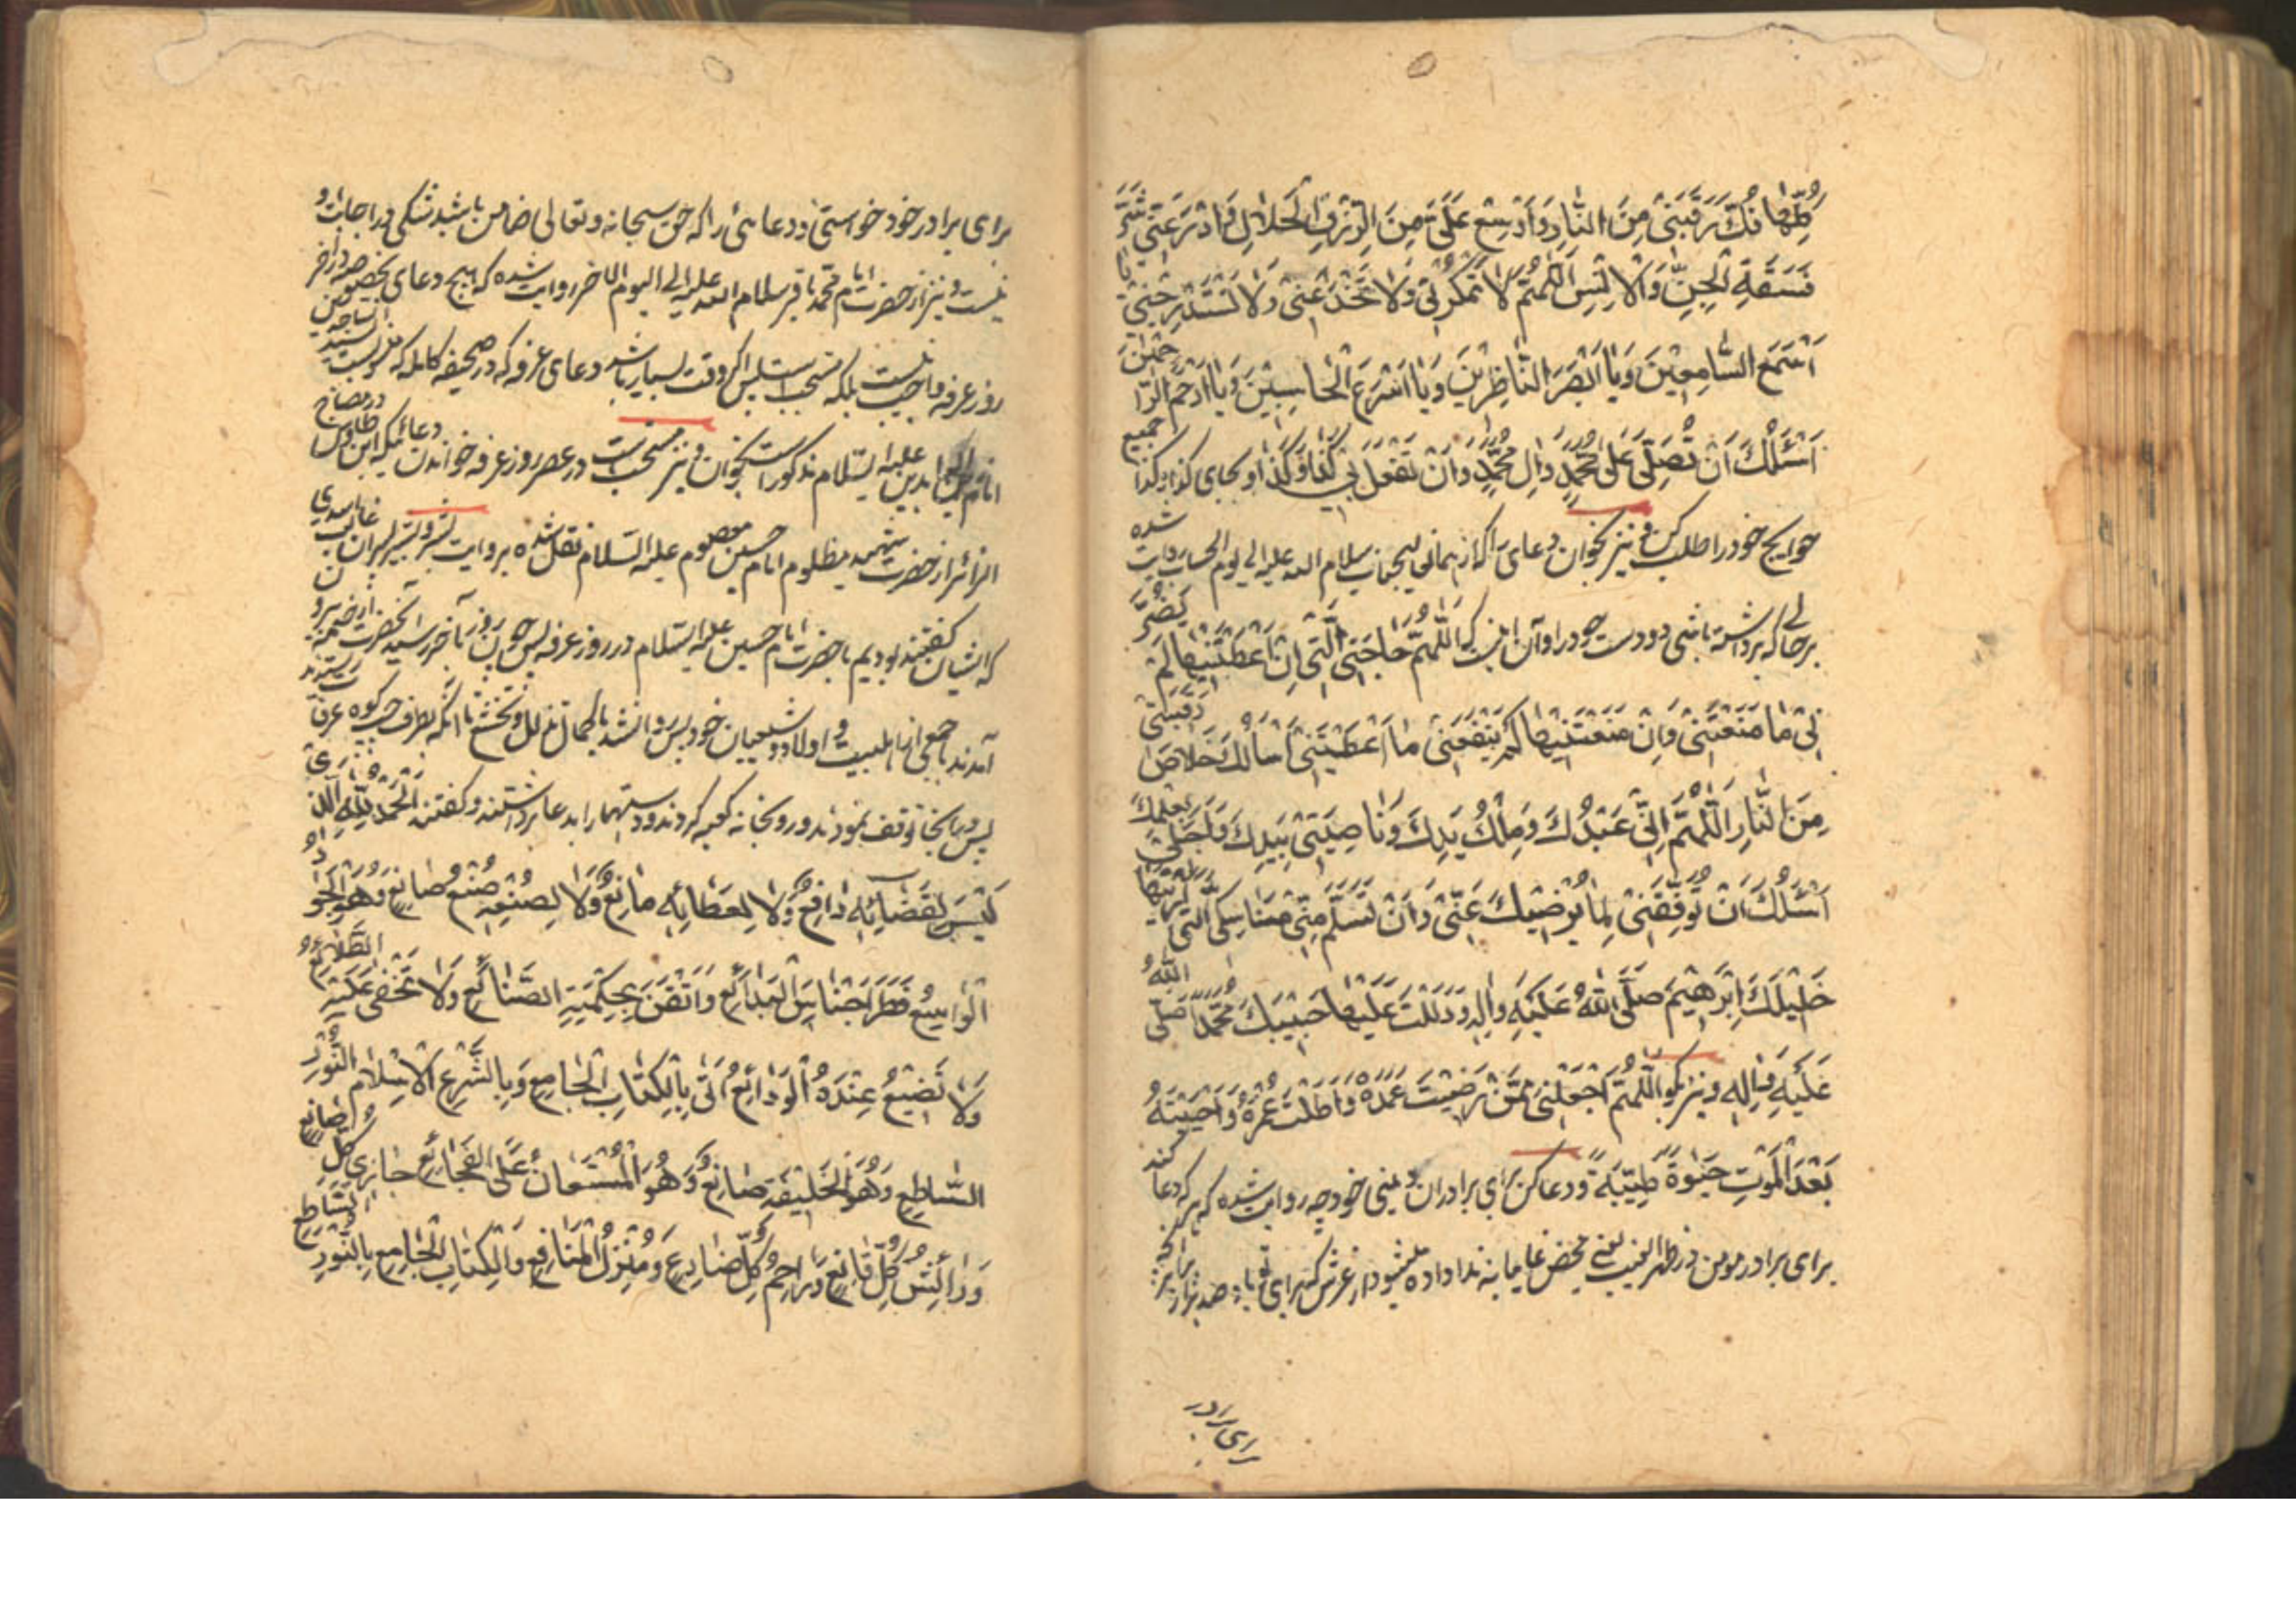 كُلِّهَا فُكَّ رَقَبَتِىْ مِنَ النَّارِ وَاَوْسِعْ عَلَىَّ مِنَ الرِّزْقِ الْحَلَالِ وَادْرَءْ عَنِّىْ شَرَّ
فَسَقَةِ الْجِنِّ وَالْاِنْسِ اَللّٰهُمَّ لَا تَمْكُرْ بِىْ وَلَا تَخْدَعْنِىْ وَلَا تَسْتَدْرِجْنِىْ يَا
اَسْمَعَ السَّامِعِيْنَ وَيَا اَبْصَرَ النَّاظِرِيْنَ وَيَا اَسْرَعَ الْحَاسِبِيْنَ وَيَا اَرْحَمَ الرَّاحِمِيْنَ
اَسْئَلُكَ اَنْ تُصَلِّىَ عَلٰى مُحَمَّدٍ وَاٰلِ مُحَمَّدٍ وَاَنْ تَفْعَلَ بِىْ كَذَا وَكَذَا و بجاى كذا و كذا جميع
حوايج خود را طلب كن و نيز بخوان دعاى را كه از همان جناب سلام الله عليه الى يوم الحساب روايت شده
برحالى كه برداشته باشى دو دست خود را و آن اينست كه اَللّٰهُمَّ حَاجَتِىَ الَّتِىْ اِنْ اَعْطَيْتَنِيْهَا لَمْ يَضُرَّ
نِىْ مَا مَنَعْتَنِىْ وَاِنْ مَنَعْتَنِيْهَا لَمْ يَنْفَعْنِىْ مَا اَعْطَيْتَنِىْ اَسْاَلُكَ خَلَاصَ رَقَبَتِىْ
مِنَ النَّارِ اَللّٰهُمَّ اِنِّىْ عَبْدُكَ وَمِلْكُ يَدِكَ وَنَاصِيَتِىْ بِيَدِكَ وَاَجَلِىْ بِعِلْمِكَ
اَسْئَلُكَ اَنْ تُوَفِّقَنِىْ لِمَا يُرْضِيْكَ عَنِّىْ وَاَنْ تَسَلَّمَ مِنِّىْ مَنَاسِكِىَ الَّتِىْ اَرَيْتَهَا
خَلِيْلَكَ اِبْرٰهِيْمَ صَلَّى اللّٰهُ عَلَيْهِ وَاٰلِهِ وَدَلَلْتَ عَلَيْهَا حَبِيْبَكَ مُحَمَّدًا صَلَّى اللّٰهُ
عَلَيْهِ وَاٰلِهِ و نيز بگو اَللّٰهُمَّ اجْعَلْنِىْ مِمَّنْ رَضِيْتَ عَمَلَهُ وَاَطَلْتَ عُمْرَهُ وَاَحْيَيْتَهُ
بَعْدَ الْمَوْتِ حَيٰوةً طَيِّبَةً و دعا كن براى برادران دينى خود چه روايت شده كه هر كه دعا كند
براى برادر مومن در ظهر الغيب يعنى محض غايبانه ندا داده ميشود از عرش كه براى تو باد صد هزار برابر آنچه
براى برادر
براى برادر خود خواستى و دعائى را كه حق سبحانه و تعالى ضامن باشد شكى در اجابت او
نيست و نيز از حضرت امام محمد باقر سلام الله عليه الى اليوم الآخر روايت شده كه هيچ دعاى مخصوص در
روز عرفه واجب نيست بلكه مستحب است پس اگر وقت بسيار باشد دعاى عرفه كه در صحيفه كامله كه منسوبست بسيد الساجدين
امام زين العابدين عليه السّلام مذكور است بخوان و نيز مستحب است در عصر روز عرفه خواندن دعائيكه ابن طاوس در مصباح
الزائر از حضرت شهيد مظلوم امام حسين معصوم عليه السّلام نقل شده بروايت بشر و بشير پسران غالب اسدى
كه ايشان گفتند بوديم با حضرت امام حسين عليه السّلام در روز عرفه پس چون روز بآخر رسيد آنحضرت از خيمه بيرون
آمدند با جمعى از اهلبيت و اولاد و شيعيان خود پس روانه شدند با كمال تذلل و تخشع تا آنكه بطرف چپ كوه عرفات رسيدند
پس در همانجا توقف نمودند و رو بخانه كعبه كردند و دستها را بدعا برداشتند و گفتند اَلْحَمْدُ لِلّٰهِ الَّذِىْ
لَيْسَ لِقَضَائِهِ دَافِعٌ وَلَا لِعَطَائِهِ مَانِعٌ وَلَا لِصُنْعِهِ صُنْعُ صَانِعٍ وَهُوَ الْجَوَادُ
الْوَاسِعُ فَطَرَ اَجْنَاسَ الْبَدَائِعِ وَاَتْقَنَ بِحِكْمَتِهِ الصَّنَائِعَ وَلَا تَخْفٰى عَلَيْهِ الطَّلَائِعُ
وَلَا تَضِيْعُ عِنْدَهُ الْوَدَائِعُ اَتٰى بِالْكِتَابِ الْجَامِعِ وَبِالشَّرْعِ الْاِسْلَامِ النُّوْرِ
السَّاطِعِ وَهُوَ لِلْخَلِيْقَةِ صَانِعٌ وَهُوَ الْمُسْتَعَانُ عَلَى الْفَجَائِعِ جَازِىْ كُلِّ صَانِعٍ
وَرَائِشُ كُلِّ قَانِعٍ وَرَاحِمُ كُلِّ ضَارِعٍ وَمُنْزِلُ الْمَنَافِعِ وَالْكِتَابِ الْجَامِعِ بِالنُّوْرِ السَّاطِعِ